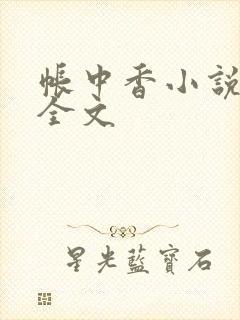 帳中香小說
全文
星光藍寶石